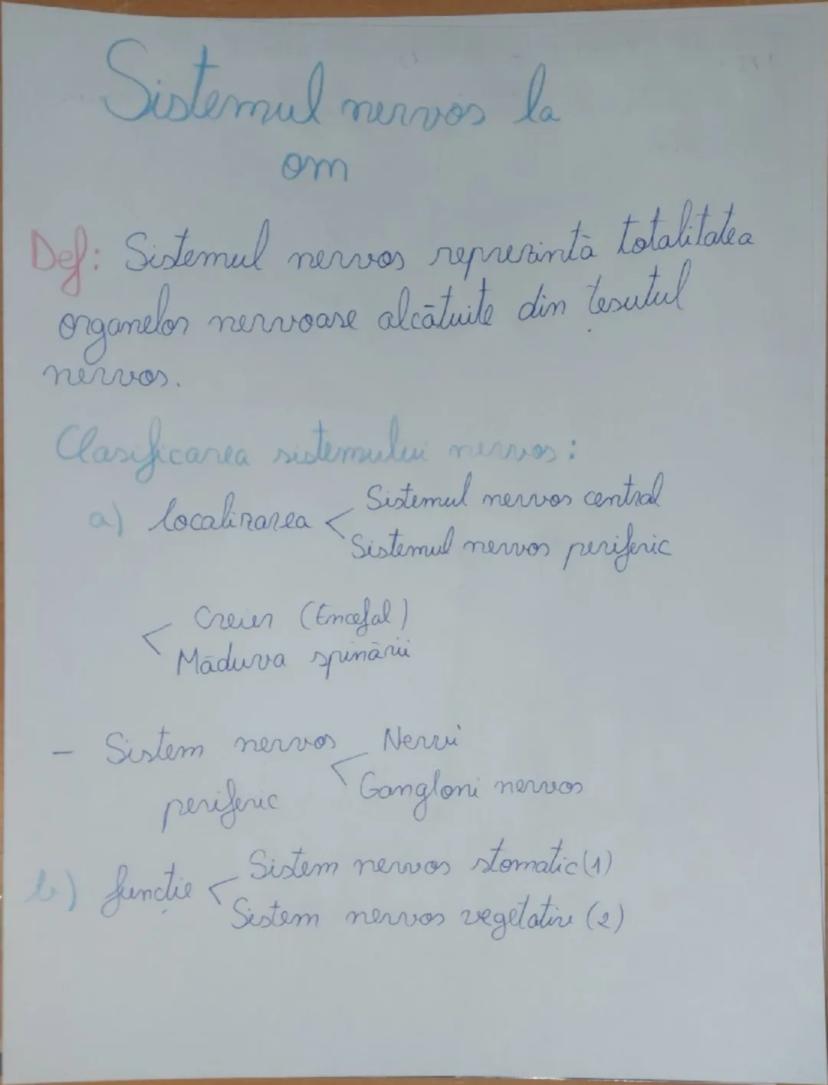 Sistemul nervos la
om
Def: Sistemul nervos reprezintă totalitatea
organelor nervoase alcătuite din țesutul
nervos.
Clasificarea sistemului nervos:
a) localizarea < Sistemul nervos central
Sistemul nervos periferic
< Creier (Encefal)
Măduva spinării
- Sistem nervos < Nervi
periferic Gangloni nervos
b) funcție < Sistem nervos stomatic (1)
Sistem nervos vegetativ (2)